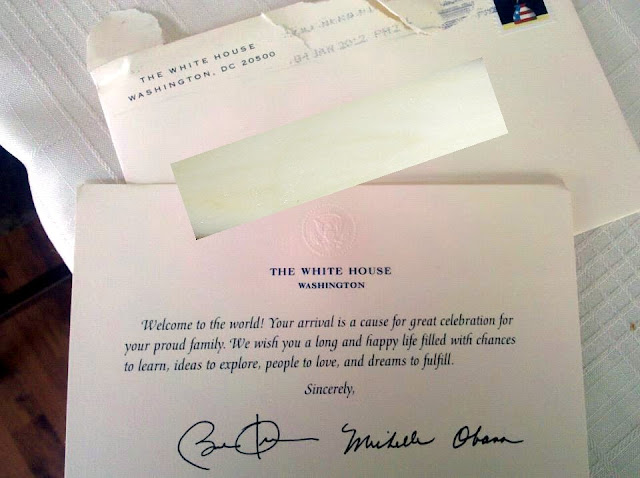 THE WHITE HOUSE
WASHINGTON, DC 20500
04 JAN 2012 PM
THE WHITE HOUSE
WASHINGTON
Welcome to the world! Your arrival is a cause for great celebration for
your proud family. We wish you a long and happy life filled with chances
to learn, ideas to explore, people to love, and dreams to fulfill.
Sincerely,
Michelle Obama